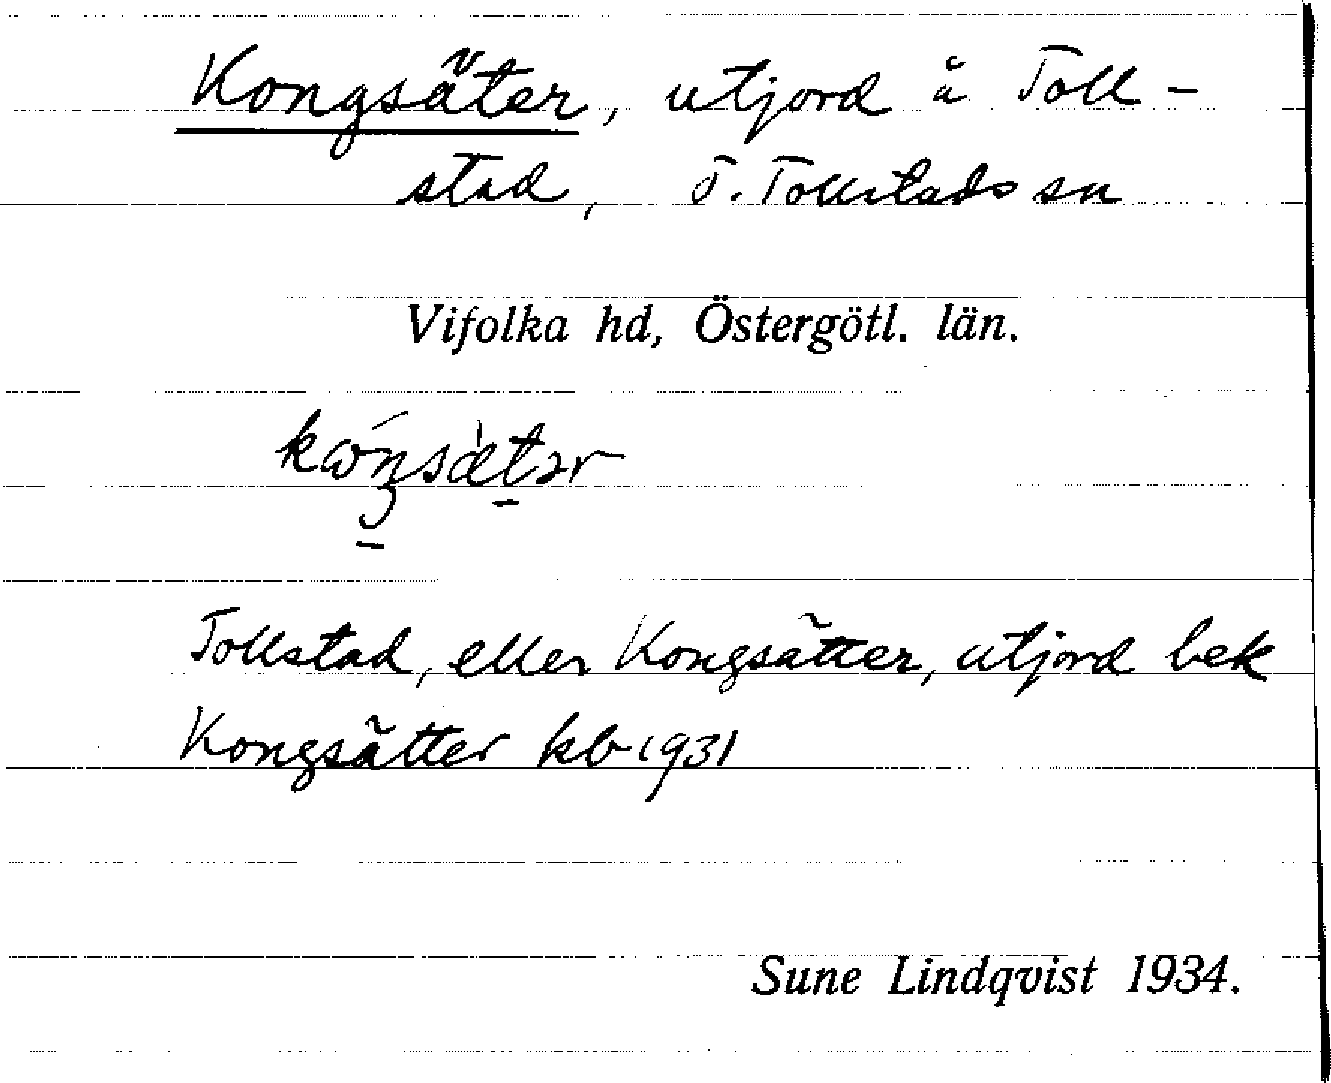 Kongsäter, utjord å Toll-
stad, Ö. Tollstads sn
Vifolka hd, Östergötl. län.
Tollstad, eller Kongsätter, utjord bek
Kongsätter kb 1931
Sune Lindqvist 1934.